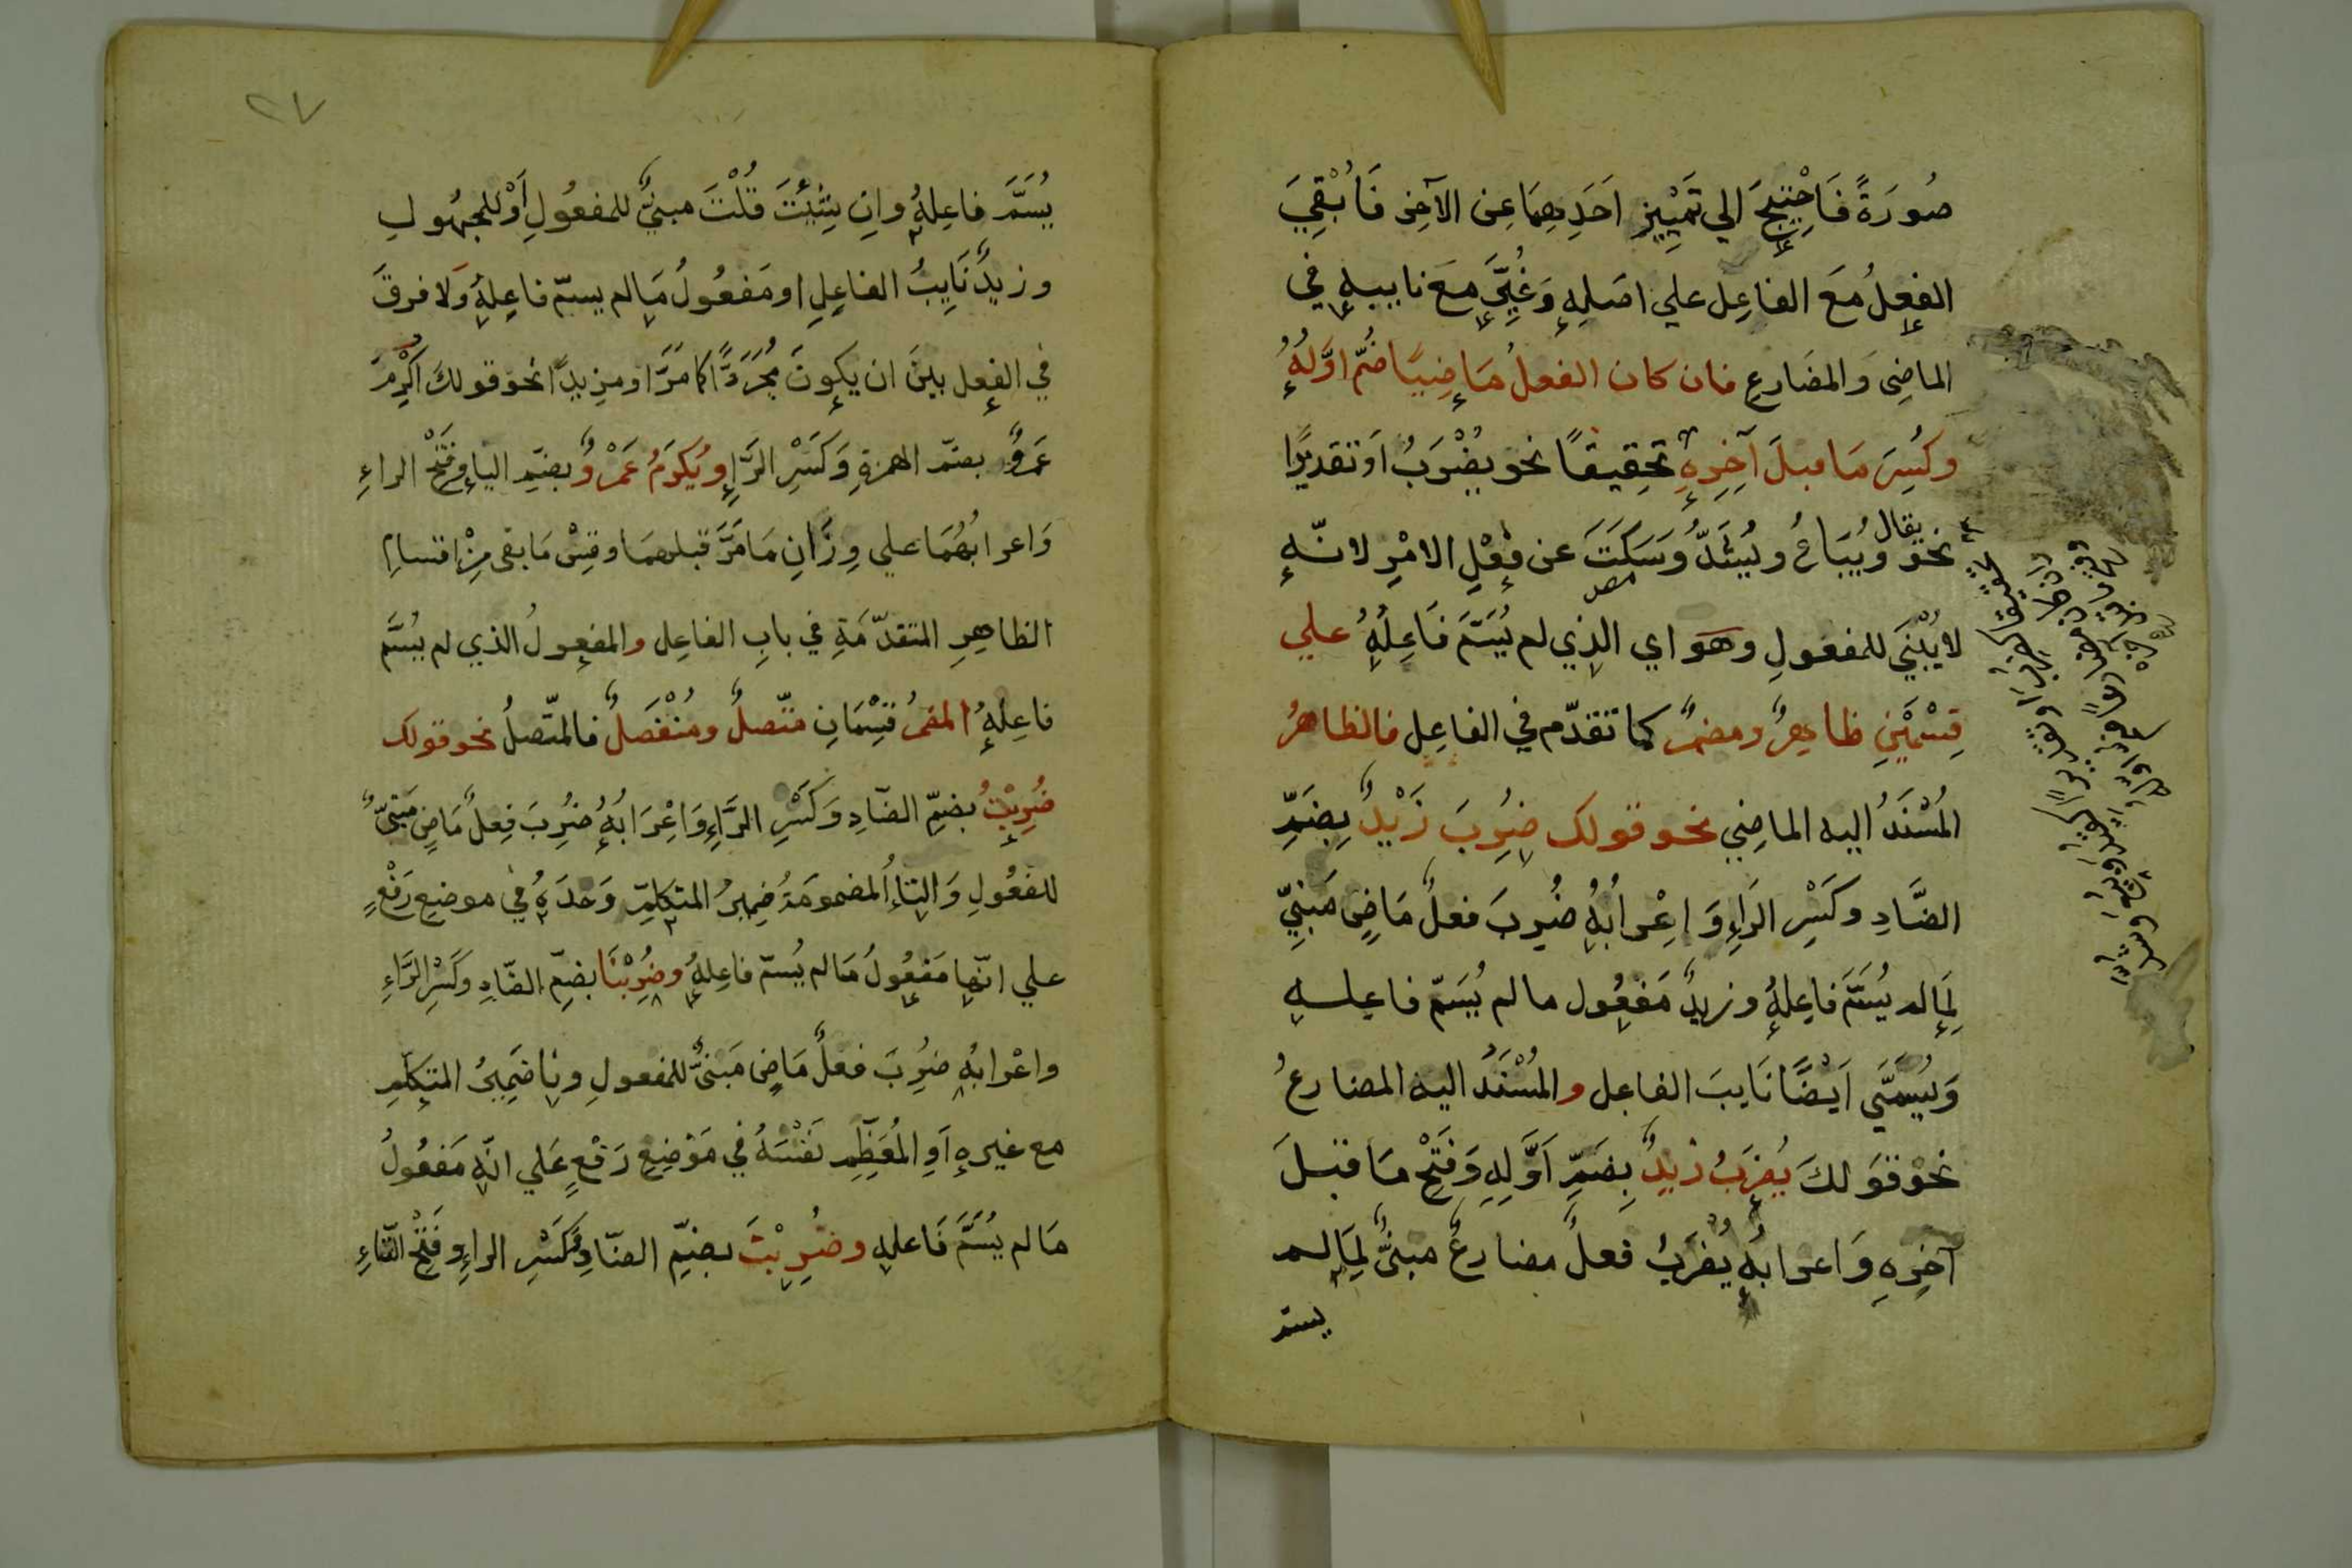 صُورَةً فَاحْتِيجَ الي تَمْيِيزِ اَحَدِهِمَا عِن الآخِرِ فَاُبْقِيَ
الفِعلُ مَعَ الفاعِل علي اصَلِهِ وَغُيِّرَ مَعَ نايبهِ في
الماضِي وَالمضَارعِ فان كان الفعلُ مَاضِيًا ضُمّ اوّلُهُ
وكُسِرَ مَا قبلَ آخِرِهِ تحقِيقًا نحو يُضْرَبُ اَو تقديرًا
نحو يقال ويُبَاعُ ويُشَدُّ وَسَكَتَ عن فِعْلِ الامْرِ لانّه
لا يُبْنَي للمفعولِ وهَو اي الذي لم يُسَمَّ فَاعِلُهُ علي
قِسْمَيْنِ ظاهِرٌ ومضمرٌ كما تقدّم في الفاعِل فالظاهرُ
المُسْنَدُ اليه الماضِي نحو قولك ضُرِبَ زَيْدٌ بِضَمِّ
الضَّادِ وكَسْرِ الرَاءِ وَاِعْرابُهُ ضُرِبَ فعلٌ مَاضٍ مَبنِيٌّ
لِمَا لم يُسَمَّ فاعِلهُ وزيدٌ مَفعُول ما لم يُسَمّ فاعِله
وَيُسَمَّي اَيْضًا نَايبَ الفاعِل والمُسْنَدُ اليه المضارعُ
نحْو قوَلكَ يُضرَبُ زيدٌ بِضَمِّ اَوَّلِهِ وَفَتْحِ مَا قبلَ
آخِرِهِ وَاعرابهُ يُضرَبُ فعلٌ مضارعٌ مبنيٌّ لِمَا لم
يسمّ
٢٧
يُسَمَّ فاعِلهُ وان شِئْتَ قُلْتَ مبنيٌّ للمفعُولِ اَوْ للمجهُولِ
وزيدٌ نَايِبُ الفاعِلِ او مَفعُولُ مَا لم يسمّ فاعِلهُ وَلا فرقَ
في الفِعل بينَ ان يكونَ مُجَرَدًّا كامَرَّ او مزيدًا نحو قولكَ اُكْرِمَ
عَمْرٌو بضمّ الهمزةِ وَكَسْرِ الرَّاءِ ويُكرَمُ عَمْرٌو بضمِّ الياءِ وفَتْحِ الراءِ
وَاعرابُهُمَا علي وِزَانِ مَا مَرَّ قبلهمَا وقِسْ مَا بقي مِنْ اقسام
الظاهِرِ المتقدّمَةِ في بابِ الفاعِل والمفعولُ الذي لم يُسَّم
فاعِلهُ المضمرُ قِسْمَانِ متّصلٌ ومُنْفَصَلٌ فالمتّصلُ نحو قولك
ضُرِبْتُ بضمِّ الضَادِ وَكَسْرِ الرَّاءِ وَاعْرَابُهُ ضُرِبَ فِعلٌ مَاضٍ مَبنيٌّ
للمفعُولِ وَالتاءُ المضمومَةُ ضِميرُ المتكلمِ وَحدَهُ في موضِع رَفْعٍ
علي انّها مَفعُولُ مَا لم يُسمّ فاعِلهُ وضُرِبْنَا بضمِّ الضّادِ وكَسْرِ الرَّاءِ
واعْرابُهُ ضُرِبَ فعلٌ مَاضٍ مَبنيٌّ للمفعولِ ونا ضَمِيرُ المتكلّمِ
مع غيرهِ اَوِ المُعَظِّمِ نَفْسَهُ في مَوْضِعِ رَفْعٍ عَلي انّه مَفعُولُ
مَا لم يُسَمَّ فَاعلهِ وضُرِبْتَ بضمِّ الضّادِ وكَسْرِ الراءِ وفَتْحِ التّاءِ